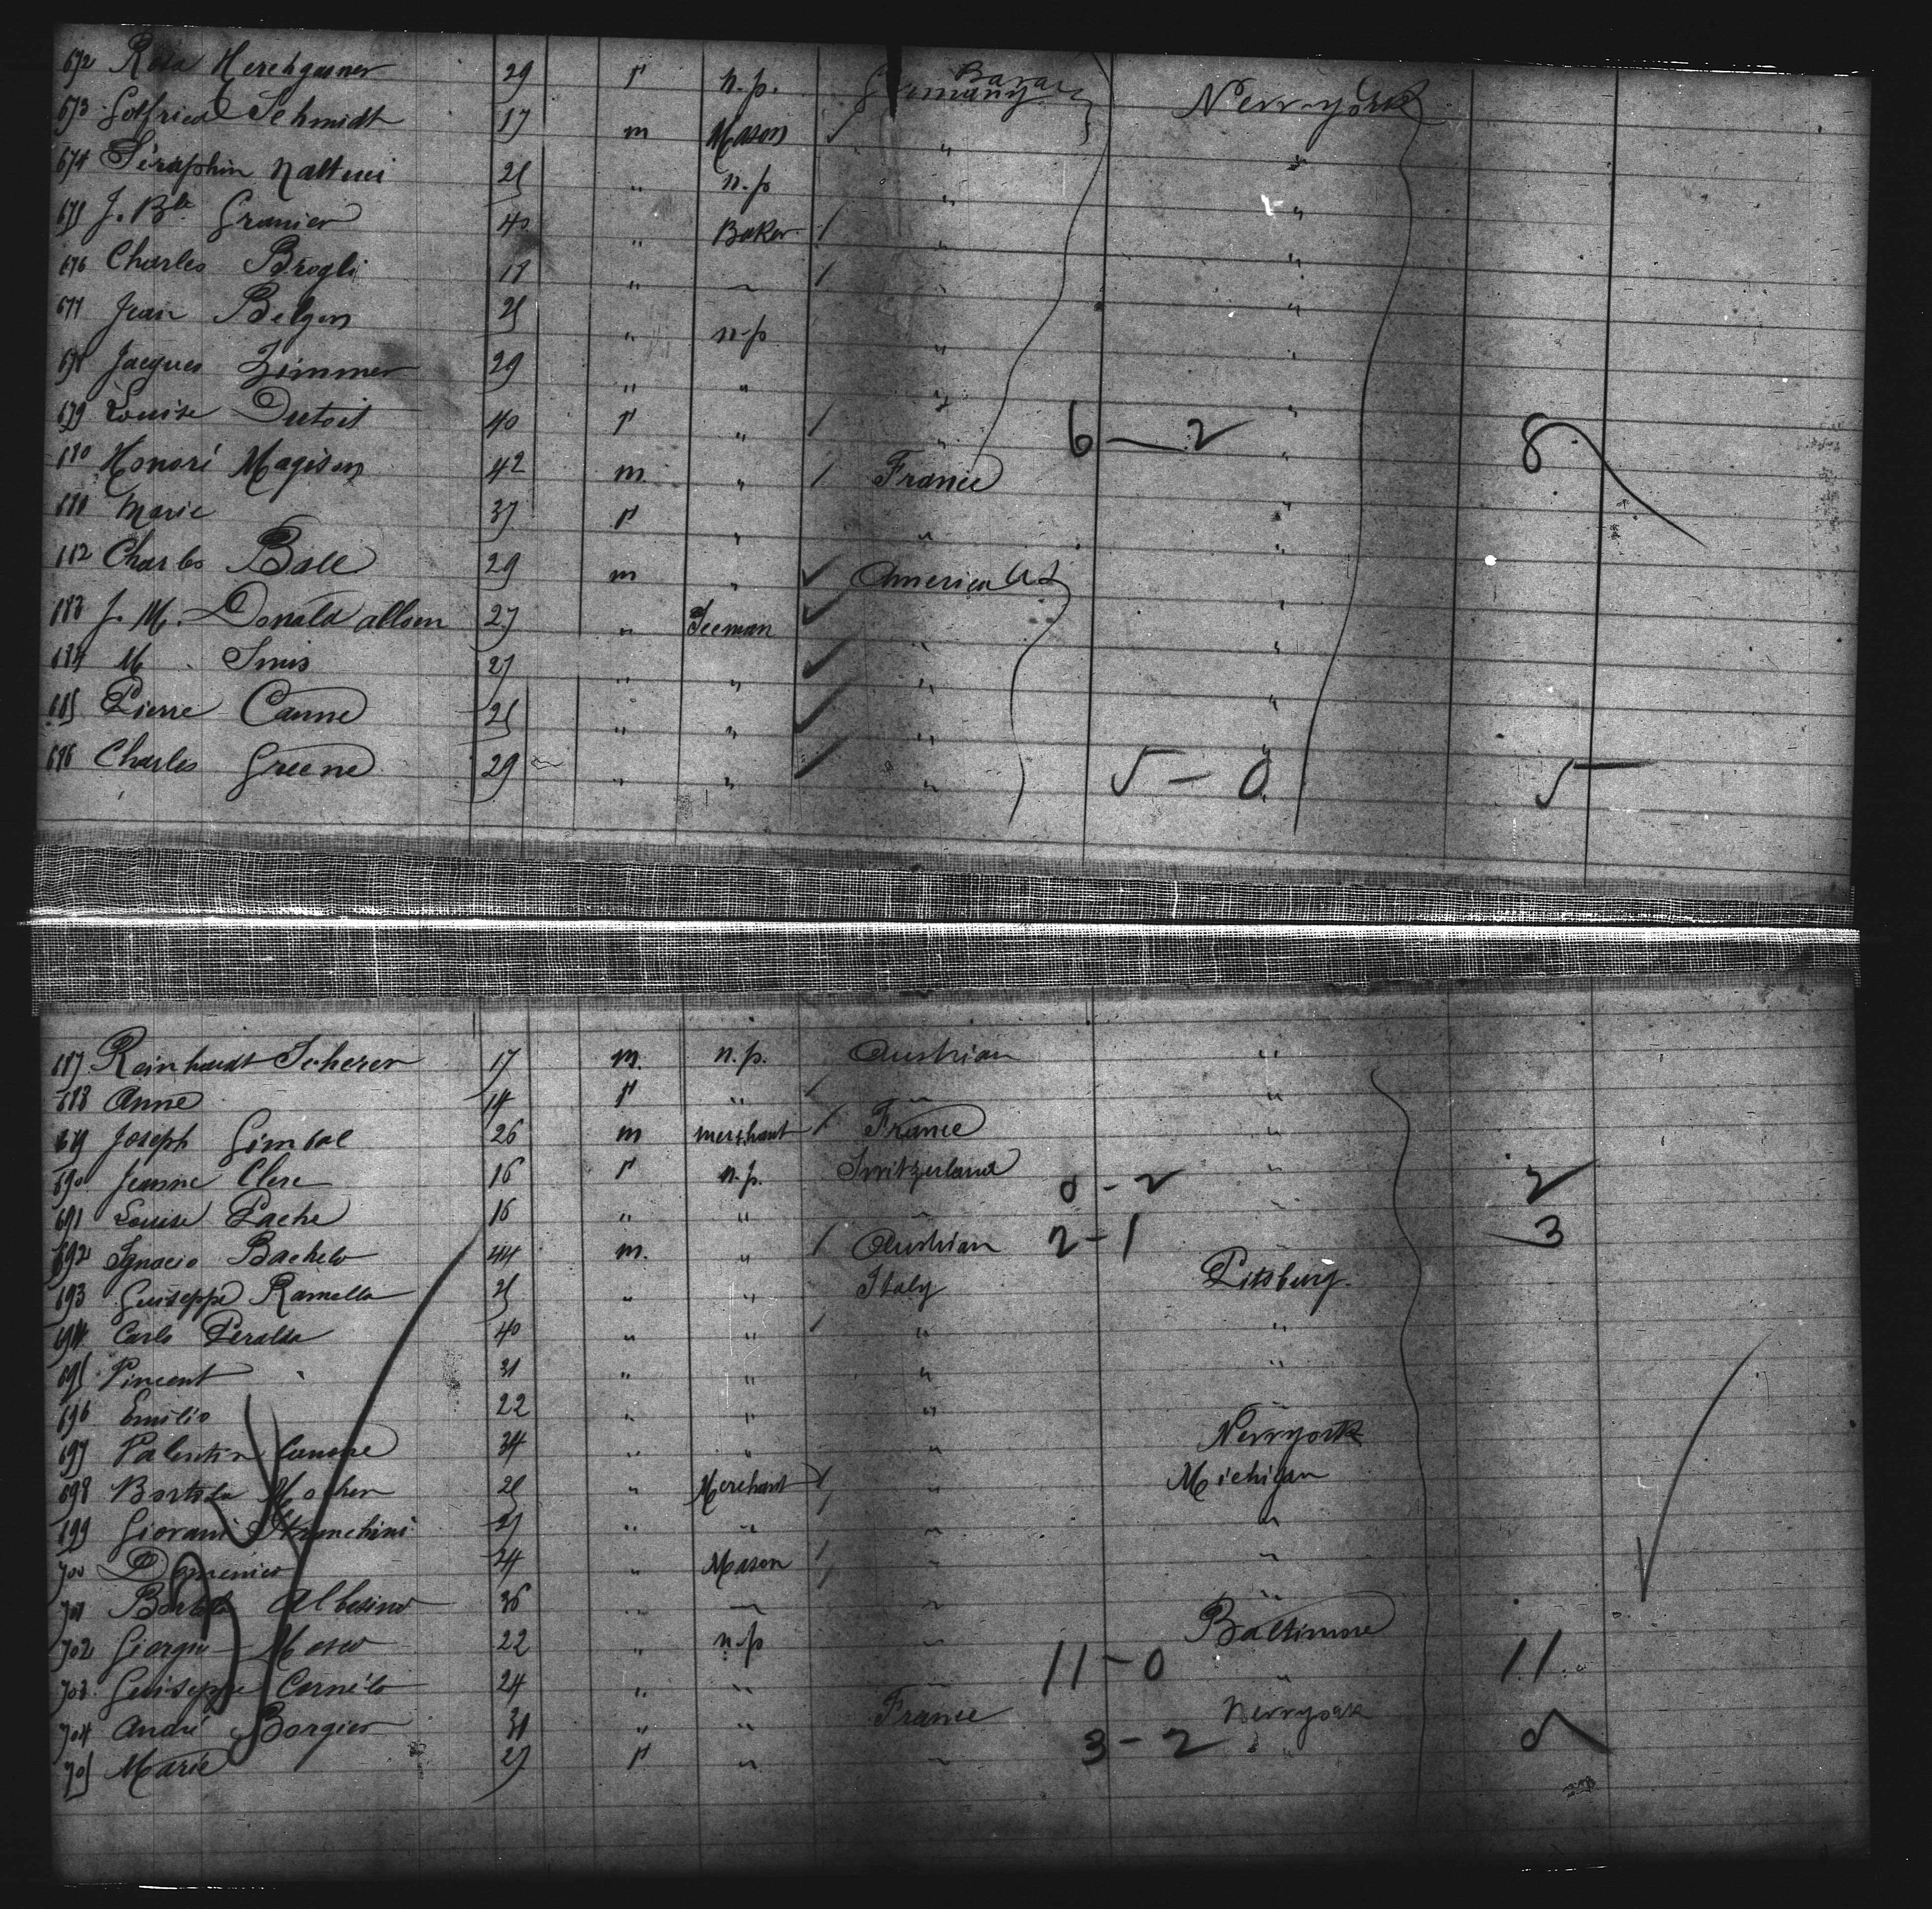 672 Rosa Herchgasner 29 f n.p. Germany Bavar Newyork
673 Gotfried Schmidt 17 m Mason " "
674 Séraphin Nattuei 25 " n.p " "
675 J. Bte Granier 40 " Baker " "
676 Charles Brogli 18 " " " "
677 Jean Belgen 25 " n-p " "
678 Jacques Zimmer 29 " " " "
679 Louise Dutoit 40 f " " 6 — 2 " 8
680 Honoré Magison 42 m " France "
681 Marie 37 f " " "
682 Charles Ball 29 m " America US "
683 J. M. Donald allsen 27 " Seeman " "
684 M. Smis 27 " " " "
685 Pierre Canne 25 " " " "
686 Charles Greene 29 " " " 5 — 0 " 5
687 Reinhardt Scherer 17 m. n.p. Austrian "
688 Anne 14 f " " "
689 Joseph Gimbal 26 m merchant France "
690 Jeanne Clerc 16 f n.p. Switzerland 0 - 2 " 2
691 Louise Pache 16 " " " "
692 Ignacio Bachelo 44 m. " Austrian 2 - 1 3
693 Guiseppe Ramella 25 " " Italy Pitsburg
694 Carlo Peralda 40 " " " "
695 Vincent 31 " " " "
696 Emilio 22 " " " "
697 Valentin 34 " " " Newyork
698 Bortolo 28 " Merchant " Michigan
699 Giovani 27 " " " "
700 Domenico 24 " Mason " "
701 Bortolo Albesino 36 " " " "
702 Giorgio Mosco 22 " n.p " Baltimore 11 - 0 11
703 Guiseppe Cornélo 24 " " " "
704 André Borgier 31 " " France Newyork
705 Marie 27 f " " 3 - 2 "